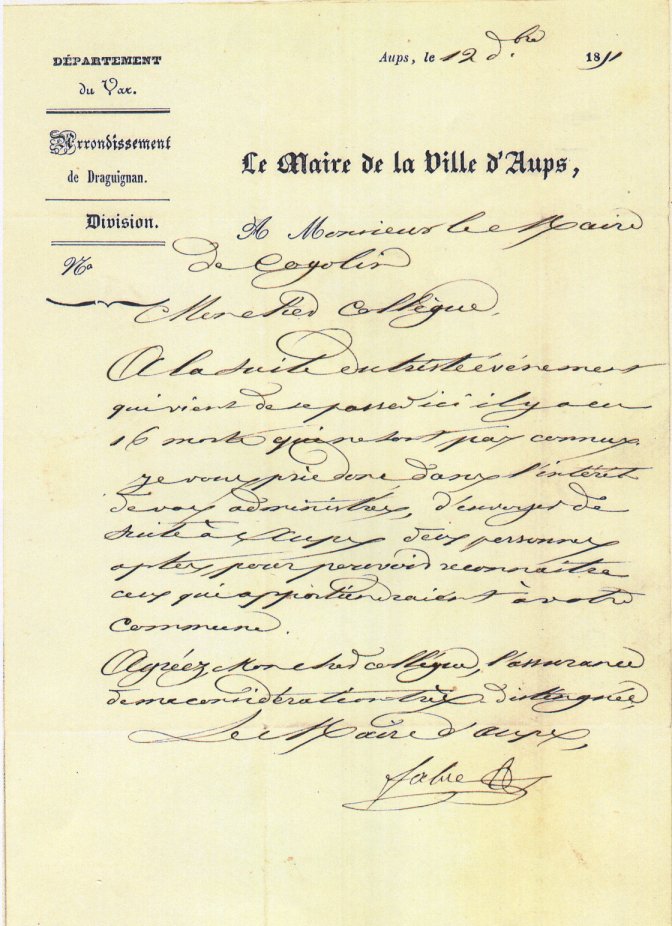 DÉPARTEMENT
du Var.
Arrondissement
de Draguignan.
Division.
No
Aups, le 12 Xbre 1851
Le Maire de la Ville d'Aups,
A Monsieur le Maire
de Cogolin
Mon cher Collègue,
A la suite du triste événement
qui vient de se passer ici il y a eu
16 morts qui ne sont pas connus
je vous prie donc, dans l'intérêt
de vos administrés, d'envoyer de
suite à Aups deux personnes
aptes, pour pouvoir reconnaître
ceux qui appartiendraient à votre
commune.
Agréez, Mon cher collègue, l'assurance
de ma considération très distinguée,
Le Maire d'aups,
fabre